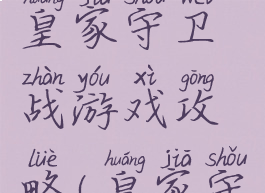 huáng jiā shǒu wèi
皇家守卫
zhàn yóu xì gōng
战游戏攻
lüè huáng jiā shǒu
略(皇家守